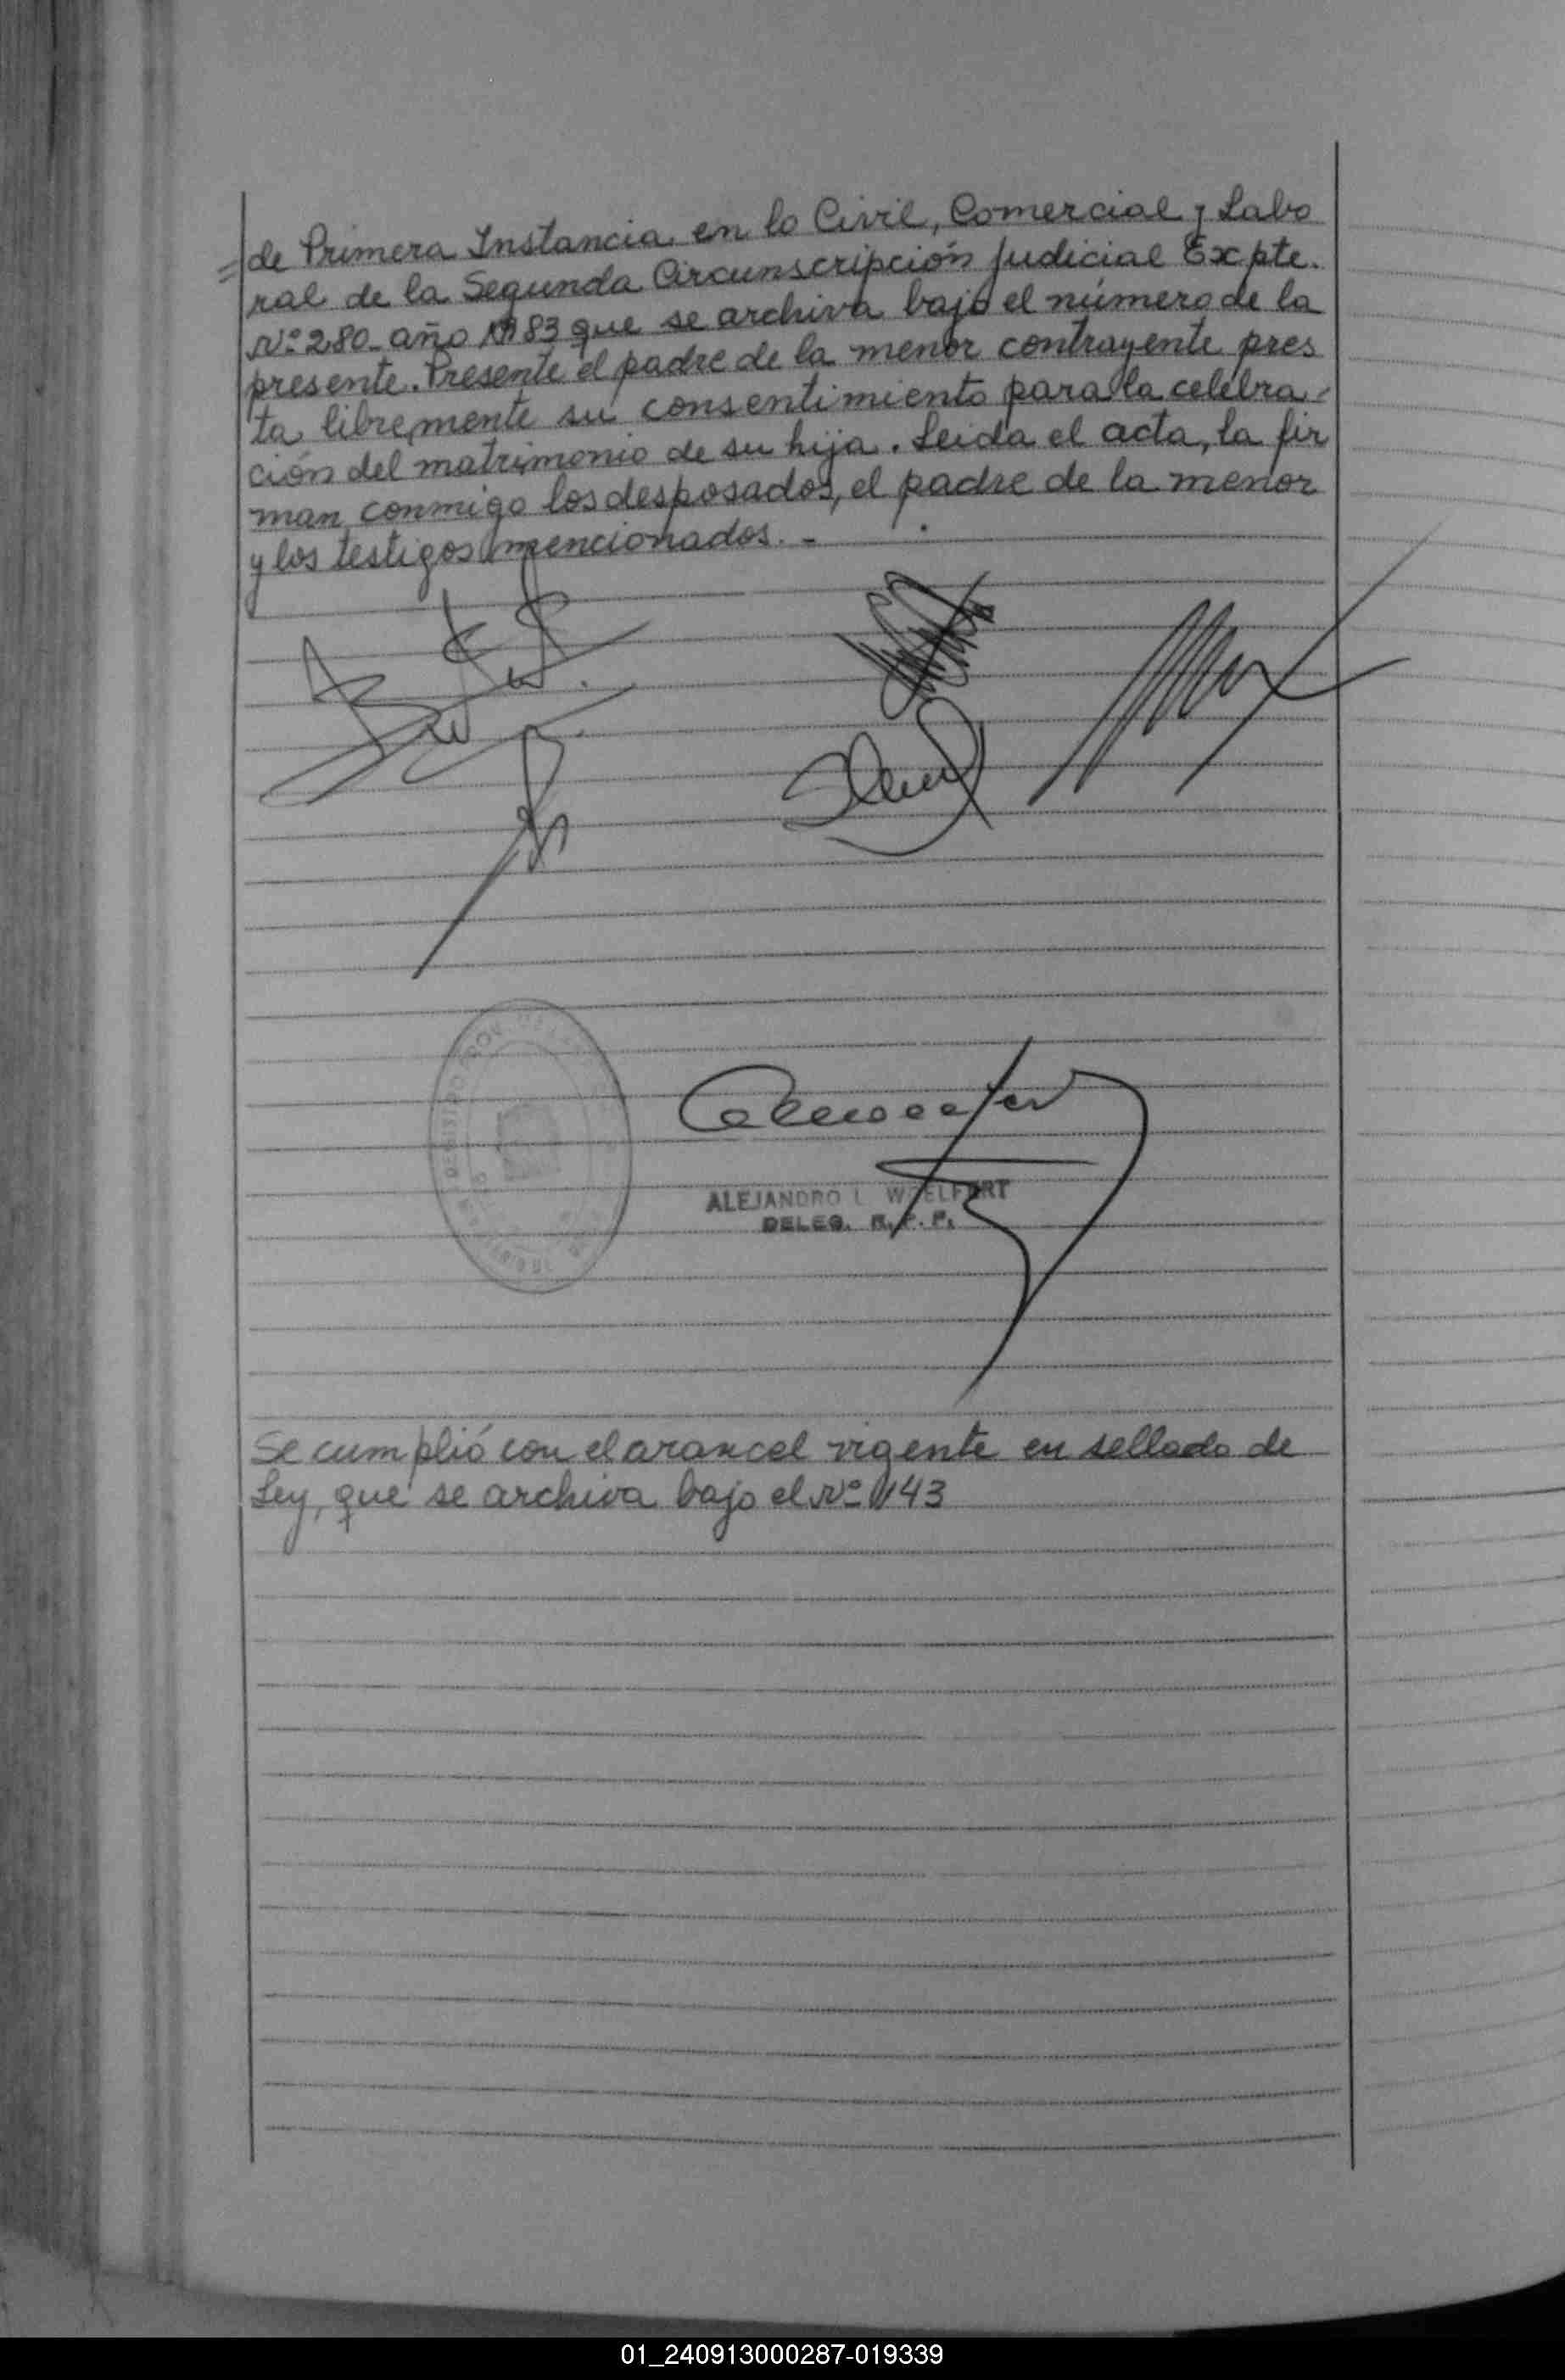 = de Primera Instancia en lo Civil, Comercial y Labo
ral de la Segunda Circunscripción Judicial Expte.
Nº 280 - año 1983 que se archiva bajo el número de la
presente. Presente el padre de la menor contrayente pres
ta libremente su consentimiento para la celebra-
ción del matrimonio de su hija. Leida el acta, la fir
man conmigo los desposados, el padre de la menor
y los testigos mencionados. -
ALEJANDRO L. WOELFERT
DELEG. R. P. P.
Se cumplió con el arancel vigente en sellado de
Ley, que se archiva bajo el Nº 143
01_240913000287-019339